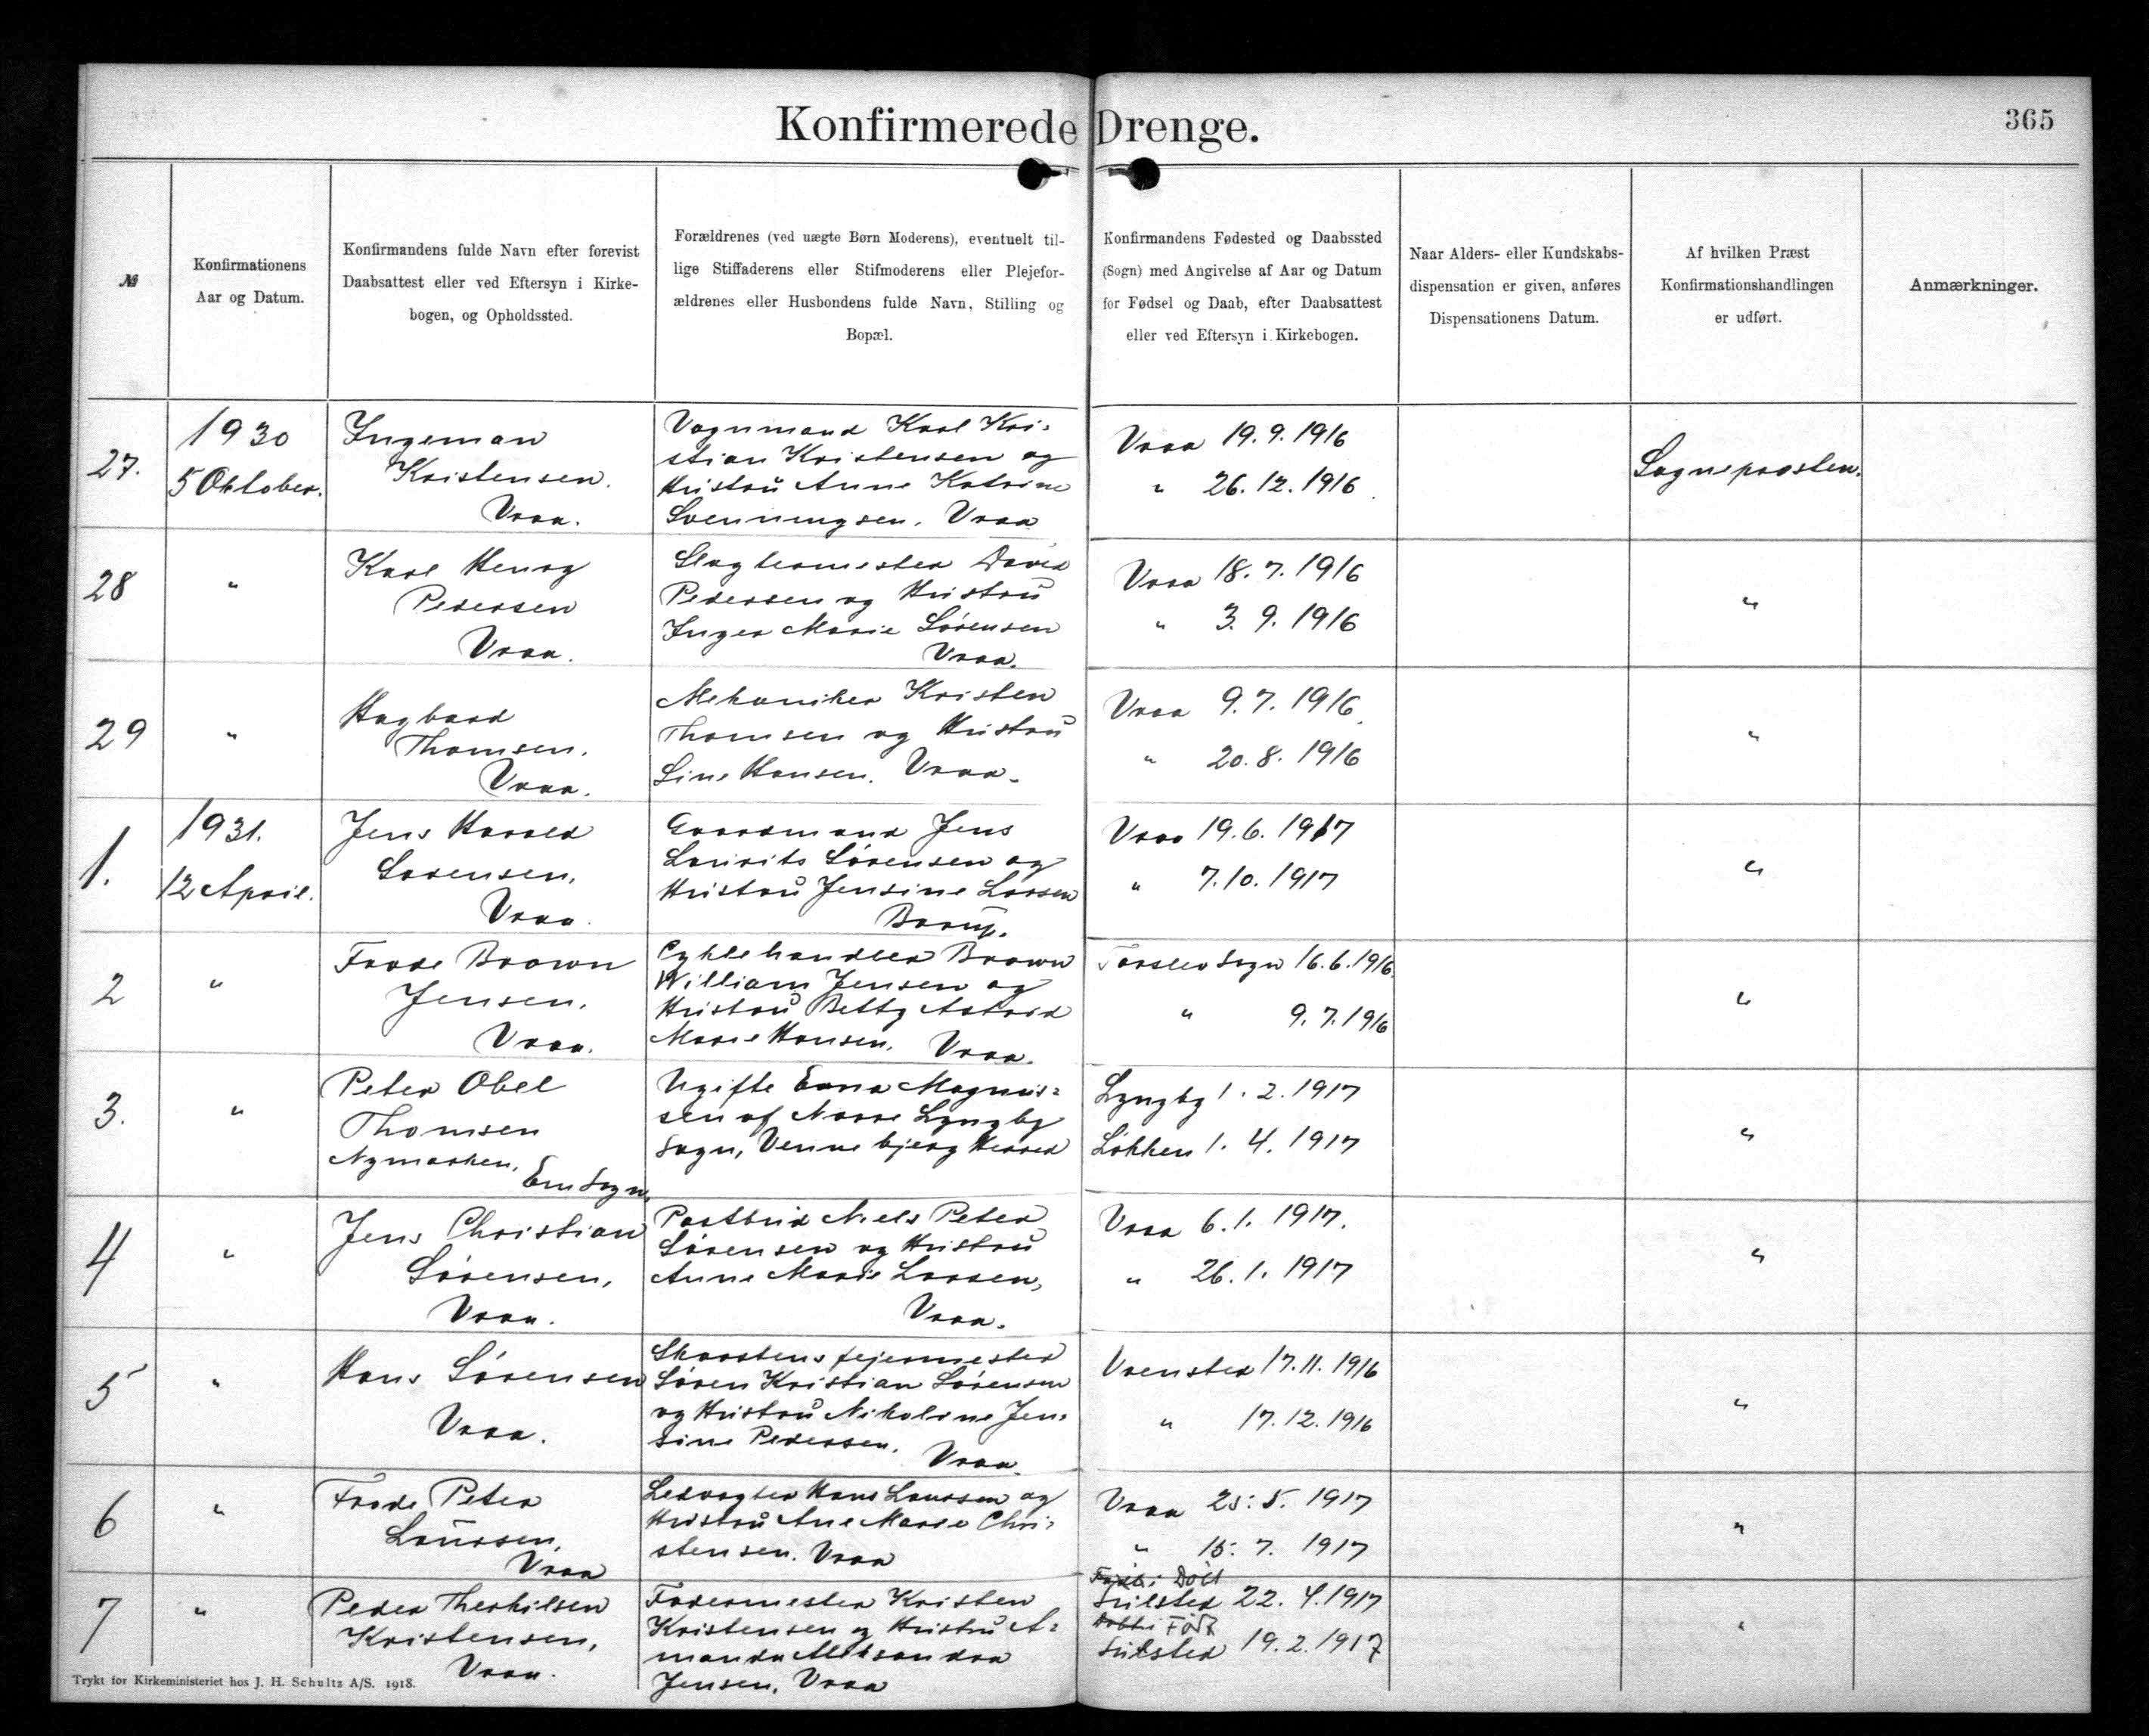 Konfirmerede Drenge.
365
№
Konfirmationens
Aar og Datum.
Konfirmandens fulde Navn efter forevist
Daabsattest eller ved Eftersyn i Kirke-
bogen, og Opholdssted.
Forældrenes (ved uægte Børn Moderens), eventuelt til-
lige Stiffaderens eller Stifmoderens eller Plejefor-
ældrenes eller Husbondens fulde Navn, Stilling og
Bopæl.
Konfirmandens Fødested og Daabssted
(Sogn) med Angivelse af Aar og Datum
for Fødsel og Daab, efter Daabsattest
eller ved Eftersyn i Kirkebogen.
Naar Alders- eller Kundskabs-
dispensation er given, anføres
Dispensationens Datum.
Af hvilken Præst
Konfirmationshandlingen
er udført.
Anmærkninger.
27.
1930
5 Oktober.
Ingeman
Kristensen.
Vraa.
Vognmand Karl Kri-
stian Kristensen og
Hustru Anne Katrine
Svenningsen. Vraa
Vraa 19.9.1916
" 26.12.1916
Sognepræsten.
28
"
Karl Henry
Pedersen
Vraa.
Slagtermester David
Pedersen og Hustru
Inger Marie Sørensen
Vraa.
Vraa 18.7.1916
" 3.9.1916
"
29
"
Hagbard
Thomsen.
Vraa.
Mekaniker Kristen
Thomsen og Hustru
Line Hansen. Vraa.
Vraa 9.7.1916
" 20.8.1916
"
1.
1931.
12 April.
Jens Harald
Sørensen.
Vraa.
Gaardmand Jens
Laurits Sørensen og
Hustru Jensine Larsen
Borup.
Vraa 19.6.1917
" 7.10.1917
"
2
"
Frode Brown
Jensen.
Vraa.
Cyklehandler Brown
William Jensen og
Hustru Betty Astrid
Marie Hansen. Vraa.
Taarslev Sogn 16.6.1916.
" 9.7.1916
"
3.
"
Peter Obel
Thomsen
Nymarken,
Em Sogn.
Ugifte Erna Magnus-
sen af Nørre Lyngby
Sogn, Vennebjerg Herred
Lyngby 1.2.1917
Løkken 1.4.1917
"
4
"
Jens Christian
Sørensen,
Vraa.
Postbud Niels Peter
Sørensen og Hustru
Anne Marie Larsen,
Vraa.
Vraa 6.1.1917.
" 26.1.1917
"
5
"
Hans Sørensen
Vraa.
Skorstensfejermester
Søren Kristian Sørensen
og Hustru Nikoline Jen-
sine Pedersen. Vraa.
Vrensted 17.11.1916
" 17.12.1916
"
6
"
Frode Peter
Laursen.
Vraa
Ledvogter Hans Laursen og
Hustru Ane Marie Chri-
stensen. Vraa
Vraa 25.5.1917
" 15.7.1917
"
7
"
Peder Therkilsen
Kristensen,
Vraa.
Fodermester Kristen
Kristensen og Hustru A-
manda Aleksandra
Jensen, Vraa
Døbt
Sulsted 22.4.1917
Født
Sulsted 19.2.1917
"
Trykt for Kirkeministeriet hos J. H. Schultz A/S. 1918.